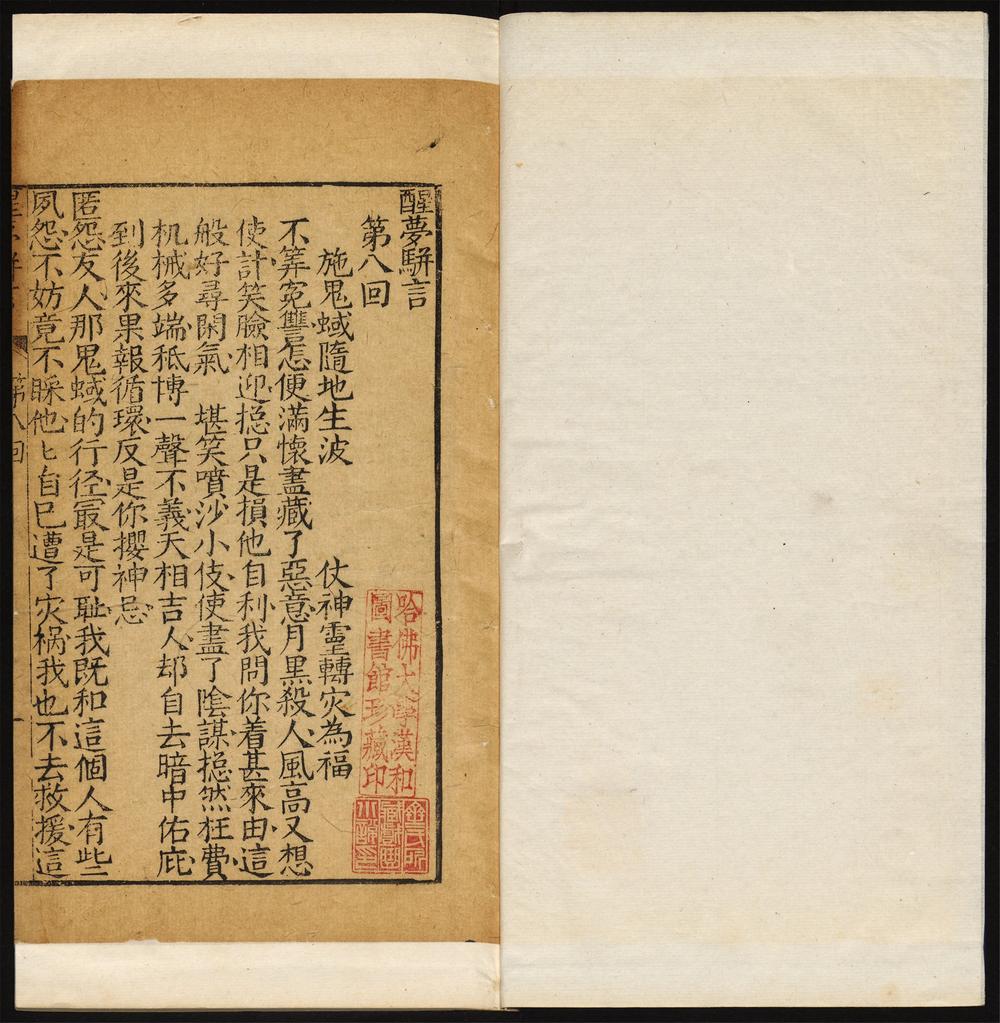 醒夢駢言
第八回
施鬼蜮隨地生波 仗神靈轉灾為福
不筭寃讐怎便滿懷盡藏了惡意月黑殺人風高又想
使計笑臉相迎揔只是損他自利我問你着甚來由這
般好尋閑氣 堪笑噴沙小伎使盡了陰謀揔然枉費
机械多端秪博一聲不義天相吉人却自去暗中佑庇
到後來果報循環反是你攖神忌
匿怨友人那鬼蜮的行径冣是可耻我既和這個人有些
夙怨不妨竟不睬他匕自巳遭了灾禍我也不去救援這
第八回
一
哈佛大學漢和
圖書館珍藏印